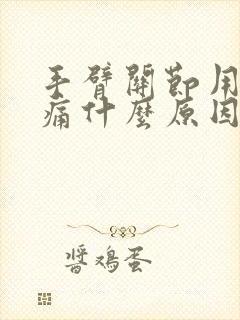 手臂關節用
痛什麼原因
醬鳴蛋